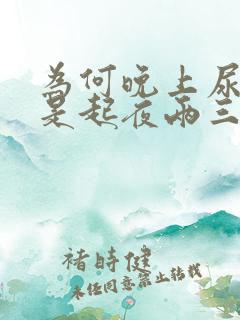 為何晚上尿
是起夜兩三
褚時健
未经同意禁止转载